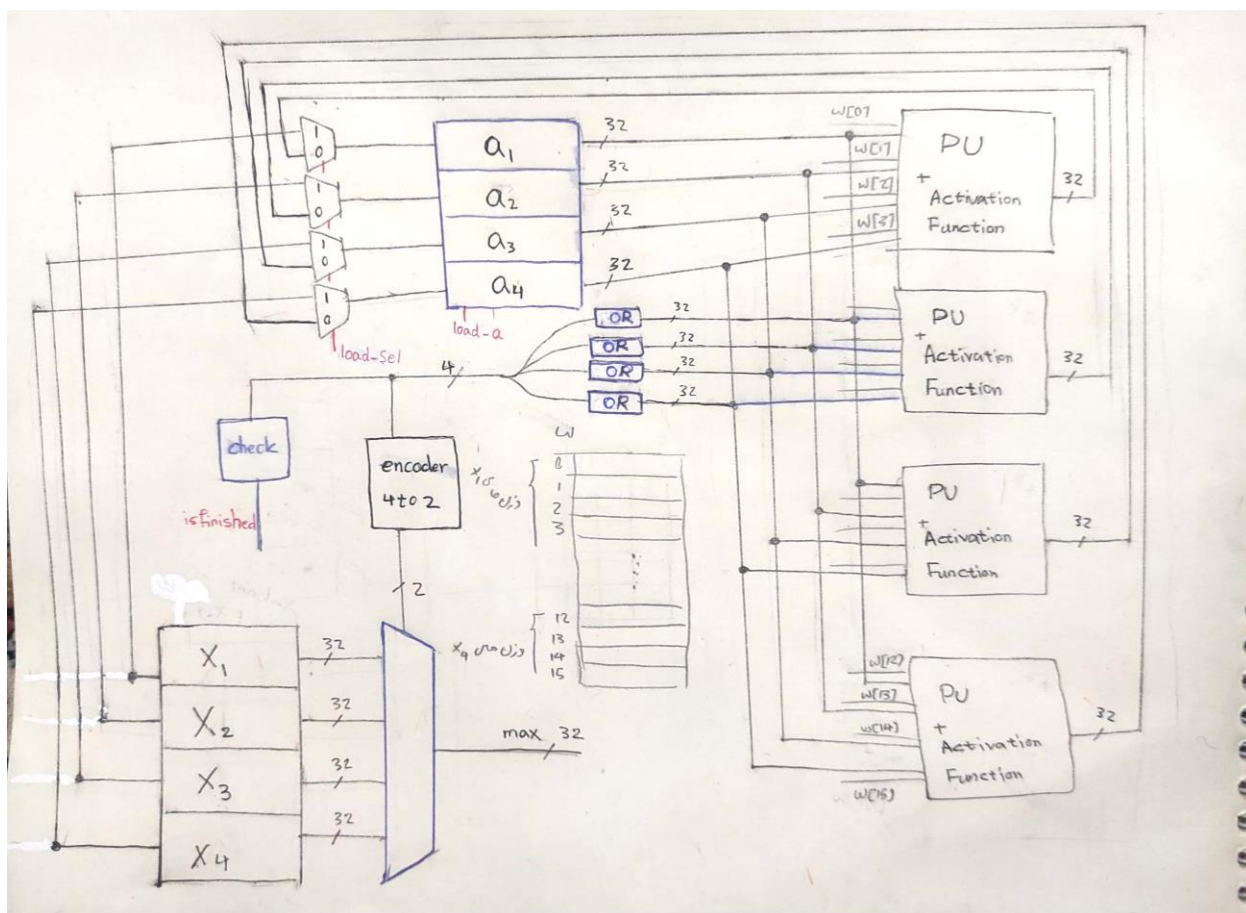 1
0
1
0
1
0
1
0
load-sel
a1
a2
a3
a4
load-a
32
32
32
32
W[0]
W[1]
W[2]
W[3]
PU
+
Activation
Function
32
OR
OR
OR
OR
32
32
32
32
PU
+
Activation
Function
32
4
check
isfinished
encoder
4 to 2
2
W
0
1
2
3
12
13
14
15
وزن های X1
وزن های X4
PU
+
Activation
Function
32
W[12]
W[13]
W[14]
W[15]
PU
+
Activation
Function
32
X1
X2
X3
X4
32
32
32
32
max 32